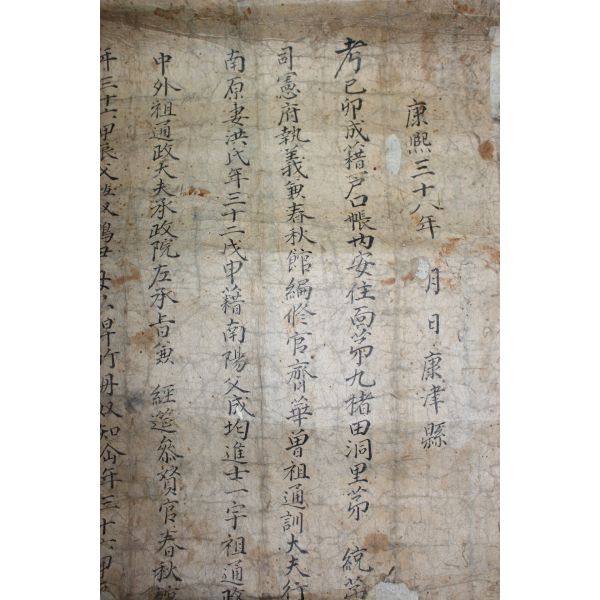 康熙三十八年 月 日 康津縣
考己卯成籍戶口帳內安住面第九楮田洞里第 統第
司憲府執義兼春秋館編修官齊華曾祖通訓大夫行
南原妻洪氏年三十二戊申籍南陽父成均進士一宇祖通政
中外祖通政大夫承政院左承旨兼 經筵參贊官春秋館
年三十六甲辰父 母 知 年三十六甲辰